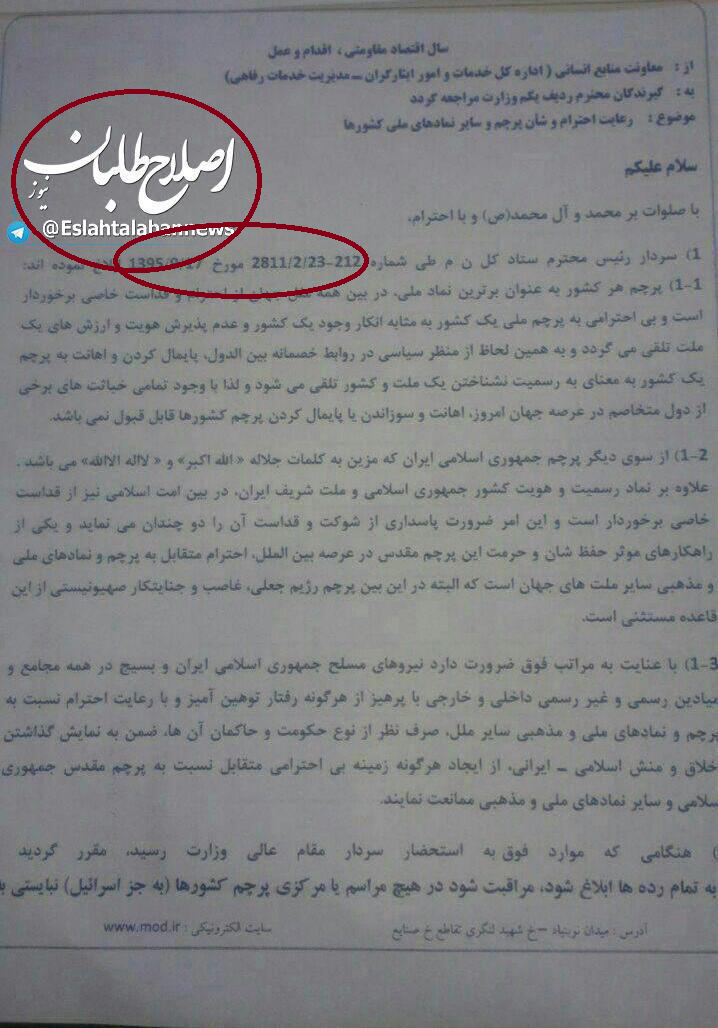 سال اقتصاد مقاومتی ، اقدام و عمل
از : معاونت منابع انسانی ( اداره کل خدمات و امور ایثارگران – مدیریت خدمات رفاهی)
به : گیرندگان محترم ردیف یکم وزارت مراجعه گردد
موضوع : رعایت احترام و شأن پرچم و سایر نمادهای ملی کشورها
اصلاح طلبان
نیوز
@Eslahtalabannews
سلام علیکم
با صلوات بر محمد و آل محمد(ص) و با احترام،
1) سردار رئیس محترم ستاد کل ن م طی شماره 212-2811/2/23 مورخ 1395/9/17 نموده اند:
1-1) پرچم هر کشور به عنوان برترین نماد ملی، در بین همه ملل جهان از احترام و قداست خاصی برخوردار
است و بی احترامی به پرچم ملی یک کشور به مثابه انکار وجود یک کشور و عدم پذیرش هویت و ارزش های یک
ملت تلقی می گردد و به همین لحاظ از منظر سیاسی در روابط خصمانه بین الدول، پایمال کردن و اهانت به پرچم
یک کشور به معنای به رسمیت نشناختن یک ملت و کشور تلقی می شود و لذا با وجود تمامی خباثت های برخی
از دول متخاصم در عرصه جهان امروز، اهانت و سوزاندن یا پایمال کردن پرچم کشورها قابل قبول نمی باشد.
1-2) از سوی دیگر پرچم جمهوری اسلامی ایران که مزین به کلمات جلاله « الله اکبر» و « لااله الاالله» می باشد .
علاوه بر نماد رسمیت و هویت کشور جمهوری اسلامی و ملت شریف ایران، در بین امت اسلامی نیز از قداست
خاصی برخوردار است و این امر ضرورت پاسداری از شوکت و قداست آن را دو چندان می نماید و یکی از
راهکارهای موثر حفظ شان و حرمت این پرچم مقدس در عرصه بین الملل، احترام متقابل به پرچم و نمادهای ملی
و مذهبی سایر ملت های جهان است که البته در این بین پرچم رژیم جعلی، غاصب و جنایتکار صهیونیستی از این
قاعده مستثنی است.
1-3) با عنایت به مراتب فوق ضرورت دارد نیروهای مسلح جمهوری اسلامی ایران و بسیج در همه مجامع و
میادین رسمی و غیر رسمی داخلی و خارجی با پرهیز از هرگونه رفتار توهین آمیز و با رعایت احترام نسبت به
پرچم و نمادهای ملی و مذهبی سایر ملل، صرف نظر از نوع حکومت و حاکمان آن ها، ضمن به نمایش گذاشتن
خلاق و منش اسلامی – ایرانی، از ایجاد هرگونه زمینه بی احترامی متقابل نسبت به پرچم مقدس جمهوری
سلامی و سایر نمادهای ملی و مذهبی ممانعت نمایند.
) هنگامی که موارد فوق به استحضار سردار مقام عالی وزارت رسید، مقرر گردید
به تمام رده ها ابلاغ شود، مراقبت شود در هیچ مراسم یا مرکزی پرچم کشورها (به جز اسرائیل) نبایستی
آدرس : میدان نوبنیاد – خ شهید لنگری تقاطع خ صنایع سایت الکترونیکی : www.mod.ir